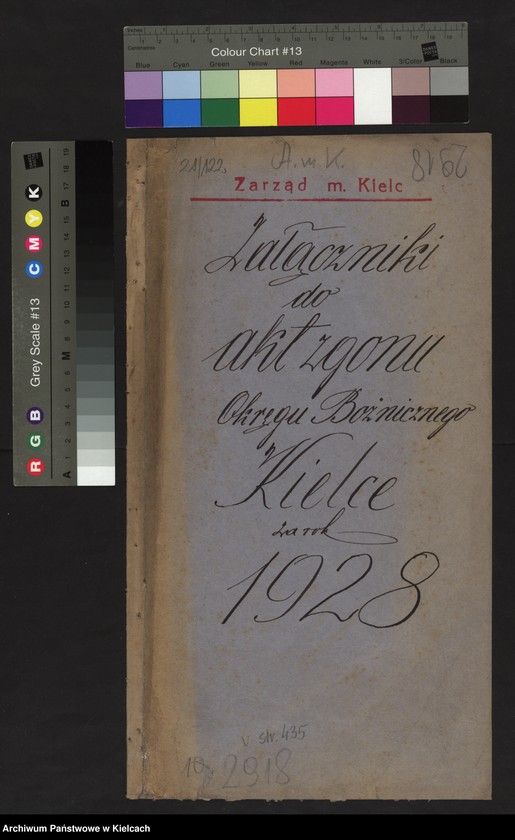 Colour Chart #13
Blue Cyan Green Yellow Red Magenta White 3/Color Black
Grey Scale #13
R G B C M Y K
A M B
21/122
A. m K.
2918
Zarząd m. Kielc
Załączniki
do
akt zgonu
Okręgu Bożnicznego
Kielce
za rok
1928
v. str. 435
2918
Archiwum Państwowe w Kielcach